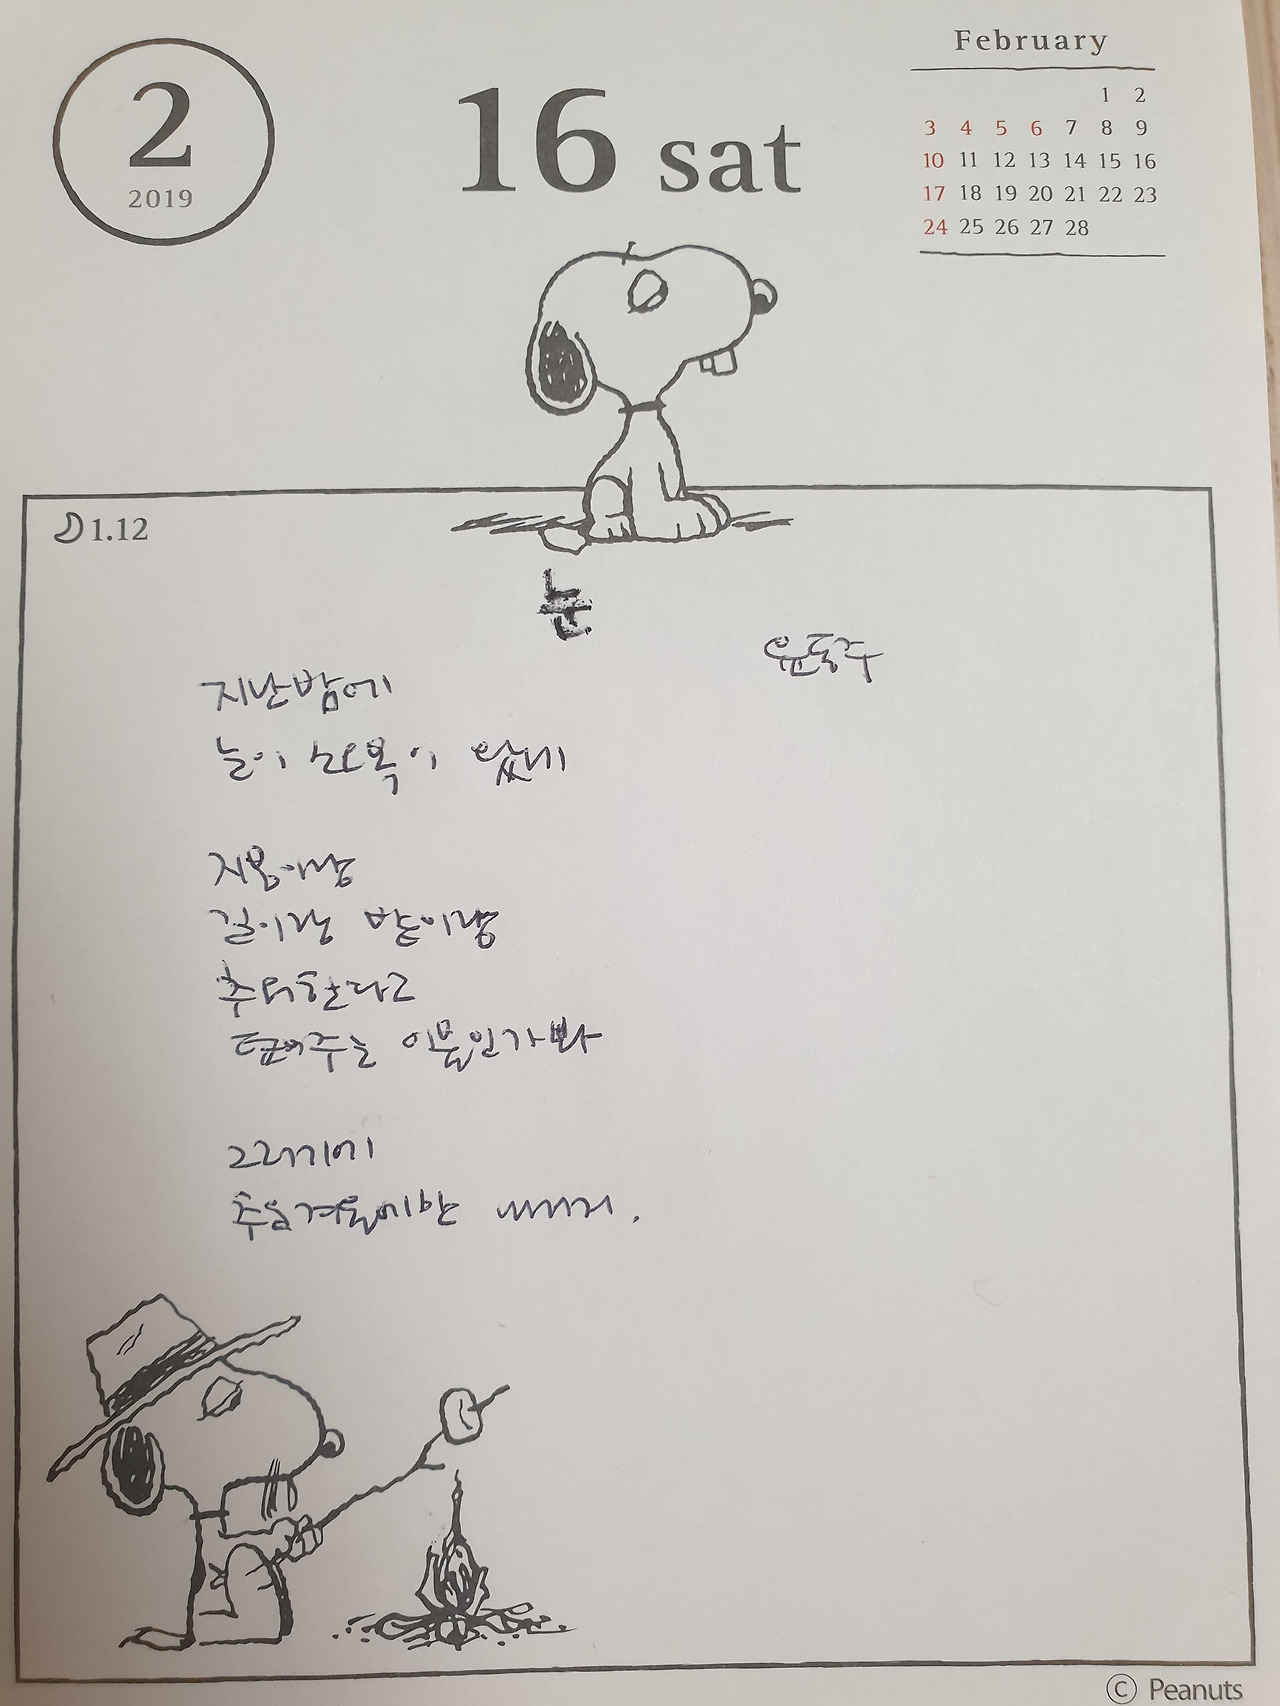 2
2019
16 sat
February
1 2
3 4 5 6 7 8 9
10 11 12 13 14 15 16
17 18 19 20 21 22 23
24 25 26 27 28
1.12
눈
윤동주
지난밤에
눈이 소오복이 왔네
지붕이랑
길이랑 밭이랑
추워한다고
덮어주는 이불인가봐
그러기에
추운겨울에만 내리지.
© Peanuts